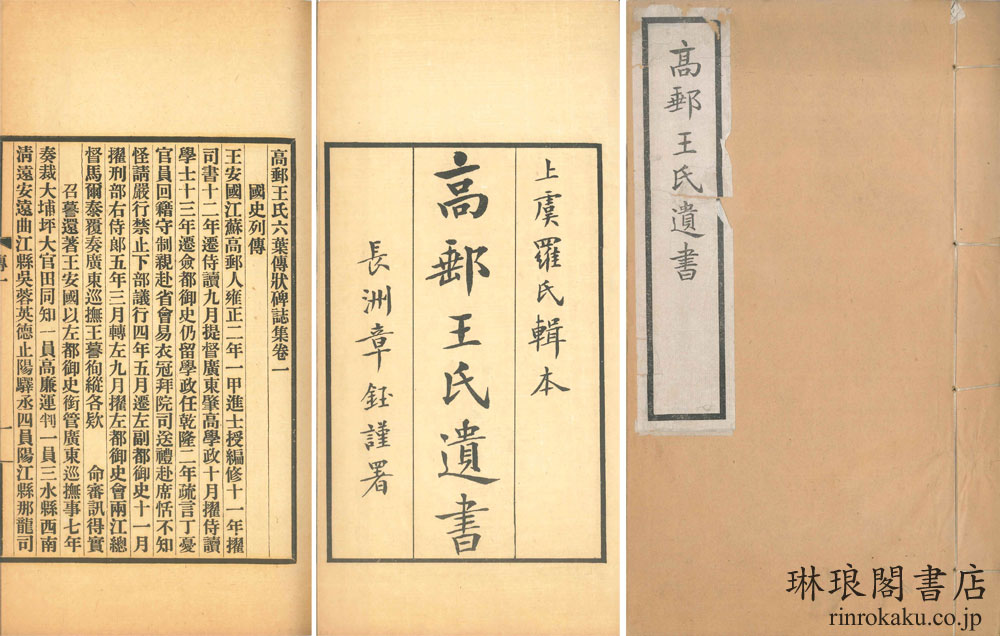 高郵王氏遺書
上虞羅氏輯本
高郵王氏遺書
長洲章鈺謹署
高郵王氏六葉傳狀碑誌集卷一
國史列傳
王安國江蘇高郵人雍正二年一甲進士授編修十一年擢
司書十二年遷侍讀九月提督廣東肇高學政十月擢侍讀
學士十三年遷僉都御史仍留學政任乾隆二年疏言丁憂
官員回籍守制親赴省會易衣冠拜院司送禮赴席恬不知
怪請嚴行禁止下部議行四年五月遷左副都御史十一月
擢刑部右侍郎五年三月轉左九月擢左都御史會兩江總
督馬爾泰覆奏廣東巡撫王謩徇縱各欵　命審訊得實
召謩還著王安國以左都御史銜管廣東巡撫事七年
奏裁大埔坪大官田同知一員高廉運判一員三水縣西南
清遠安遠曲江縣吳蓉英德止陽驛丞四員陽江縣那龍司
傳一
琳琅閣書店
rinrokaku.co.jp